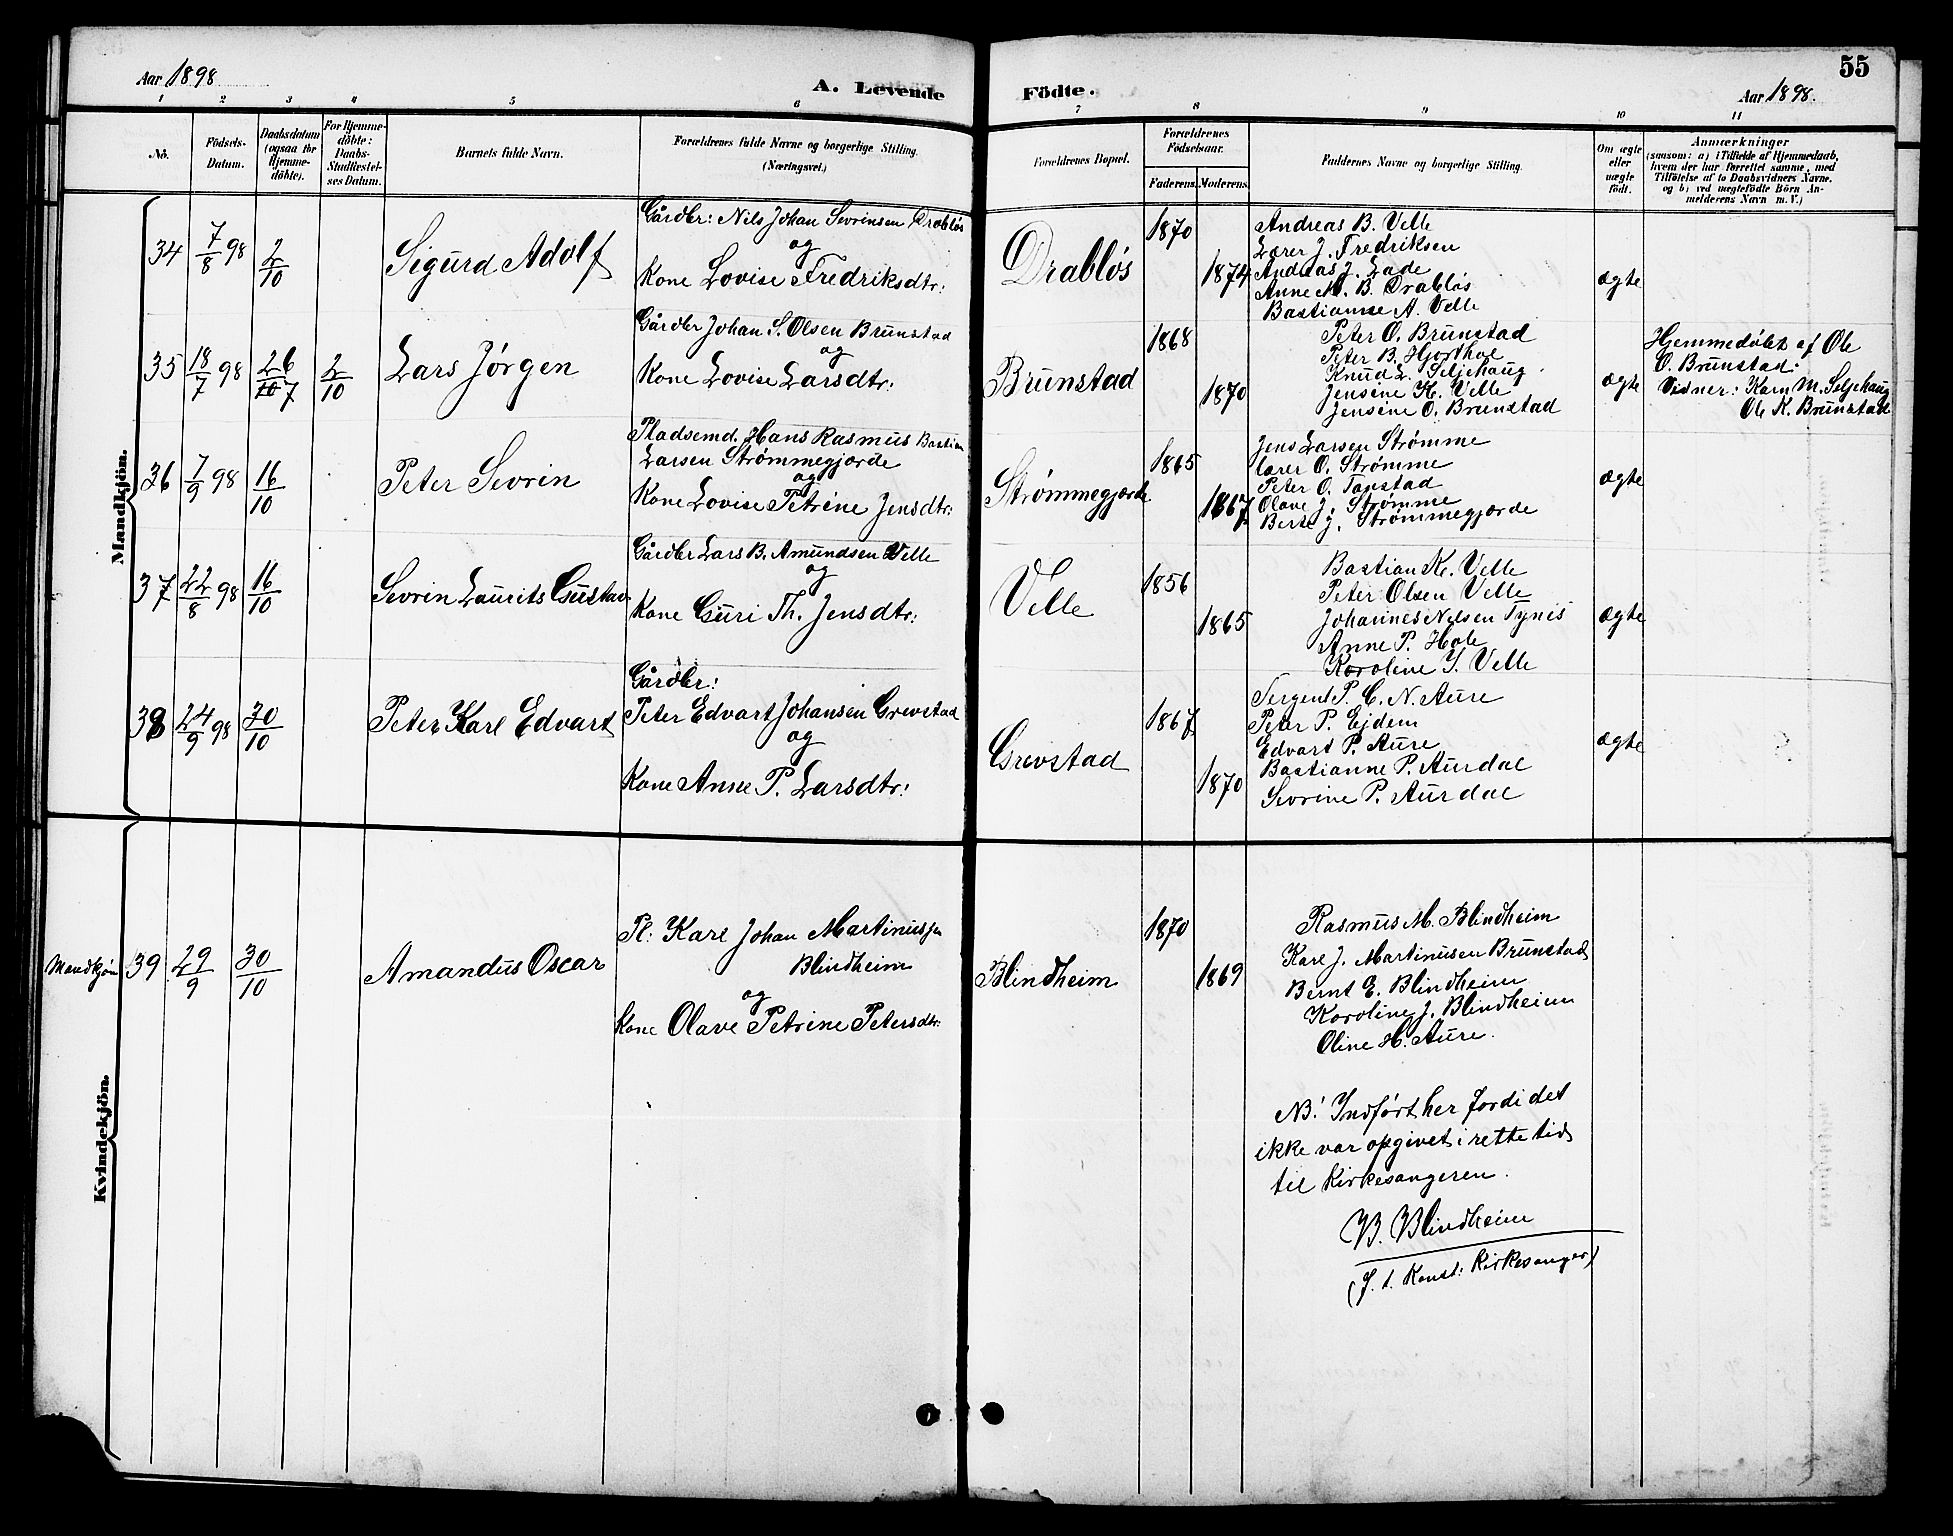 55
Aar 1898
A. Levende
Födte.
Aar 1898.
1 2 3 4 5 6 7 8 9 10 11
No.
Födsels-
Datum.
Daabsdatum
(ogsaa for
Hjemme-
döbte).
For Hjemme-
döbte:
Daabs-
Stadfæstel-
ses Datum.
Barnets fulde Navn.
Forældrenes fulde Navne og borgerlige Stilling.
(Næringsvei.)
Forældrenes Bopæl.
Forældrenes
Födselsaar.
Faderens. Moderens.
Faddernes Navne og borgerlige Stilling.
Om ægte
eller
uægte
födt.
Anmærkninger
(saasom: a) i Tilfælde af Hjemmedaab,
hvem der har forrettet samme, med
Tilföielse af to Daabsvidners Navne,
og b) ved uægtefödte Börn An-
melderens Navn m. V.)
Mandkjön.
34 7/8 98 2/10
Sigurd Adolf
Gårdbr: Nils Johan Sevrinsen Drabløs
og
Kone Lovise Fredriksdtr:
Drabløs
1870
1874
Andreas B. Velle
Lærer J. Fredriksen
Andreas J. Lade
Anne M. B. Drabløs
Bastianne A. Velle
ægte
35 18/7 98 26/10 7 2/10
Lars Jørgen
Gårdbr Johan S. Olsen Brunstad
og
Kone Lovise Larsdtr:
Brunstad
1868
1870
Peter O. Brunstad
Peter B. Hjorthol
Knud L. Seljehaug
Jensine K. Velle
Jensine O. Brunstad
ægte
Hjemmedøbt af Ole
O. Brunstad:
Vidner: Karn M. Seljehaug
Ole K. Brunstad
36 7/9 98 16/10
Peter Sevrin
Pladsemd. Hans Rasmus Bastian
Larsen Strømmegjerde
og
Kone Lovise Petrine Jensdtr:
Strømmegjerde
1865
1867
Jens Larsen Strømme
lærer O. Strømme
Peter O. Tanstad
Olave J. Strømme
Berte J. Strømmegjerde
ægte
37 22/8 98 16/10
Sevrin Laurits Gustav
Gårdbr Lars B. Amundsen Velle
og
Kone Guri Th. Jensdtr:
Velle
1856
1865
Bastian K. Velle
Peter Olsen Velle
Johannes Nilsen Tynis
Anne P. Hole
Karoline J. Velle
ægte
38 24/9 98 30/10
Peter Karl Edvart
Gårdbr:
Peter Edvart Johansen Grevstad
og
Kone Anne P. Larsdtr:
Grevstad
1867
1870
Sergent P. C. N. Aure
Peter P. Ejdem
Edvart P. Aure
Bastianne P. Aurdal
Sevrine P. Aurdal
ægte
Kvindekjön.
Mandkjøn 39 29/9 30/10
Amandus Oscar
Pl: Karl Johan Martinussen
Blindheim
og
Kone Olave Petrine Petersdtr:
Blindheim
1870
1869
Rasmus M. Blindheim
Karl J. Martinusen Brunstad
Bernt E. Blindheim
Karoline J. Blindheim
Oline H. Aure.
NB! Indført her fordi det
ikke var opgivet i rette tid
til Kirkesangeren.
B. Blindheim
(f. t. Konst: Kirkesanger)